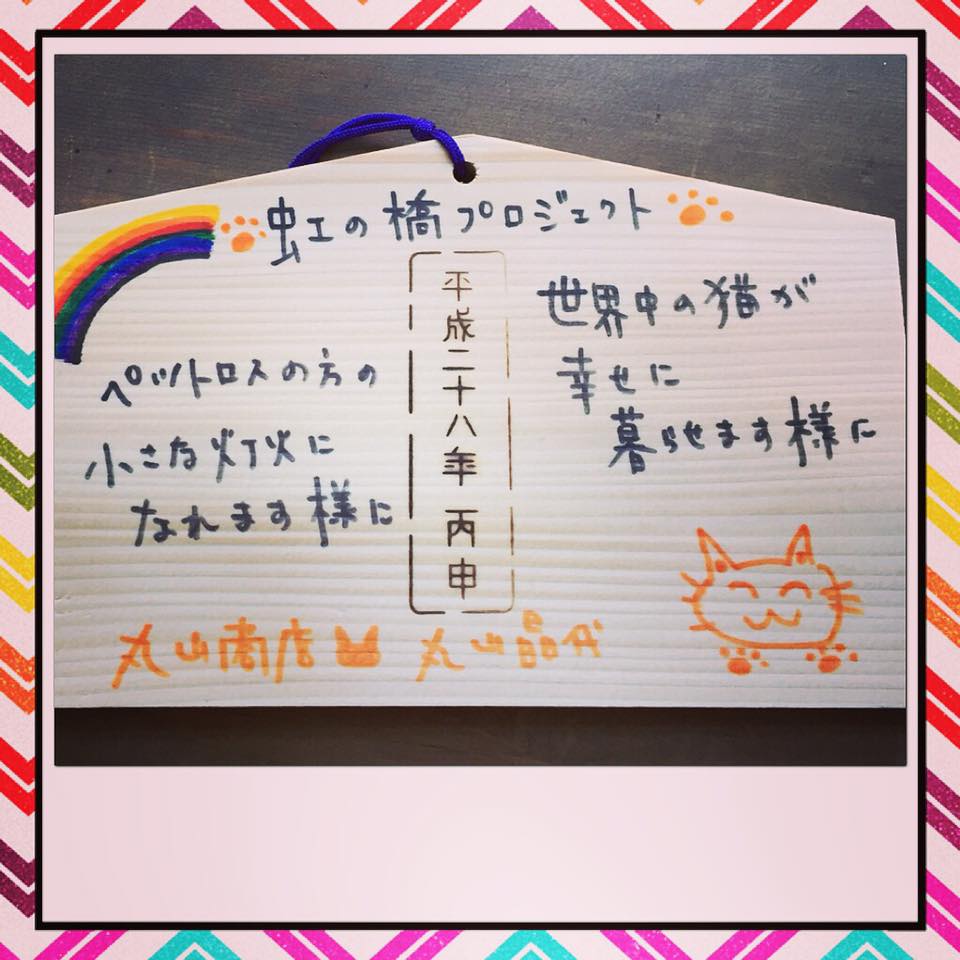 虹の橋プロジェクト
世界中の猫が
幸せに
暮らせます様に
平成二十八年 丙申
ペットロスの方の
小さな灯火に
なれます様に
丸山商店 丸山晶代